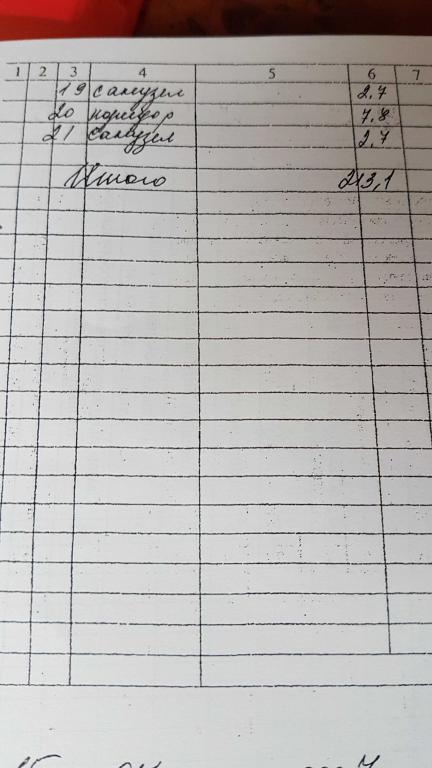 1 2 3 4 5 6 7
19 санузел 2,7
20 коридор 7,8
21 санузел 2,7
Итого 213,1